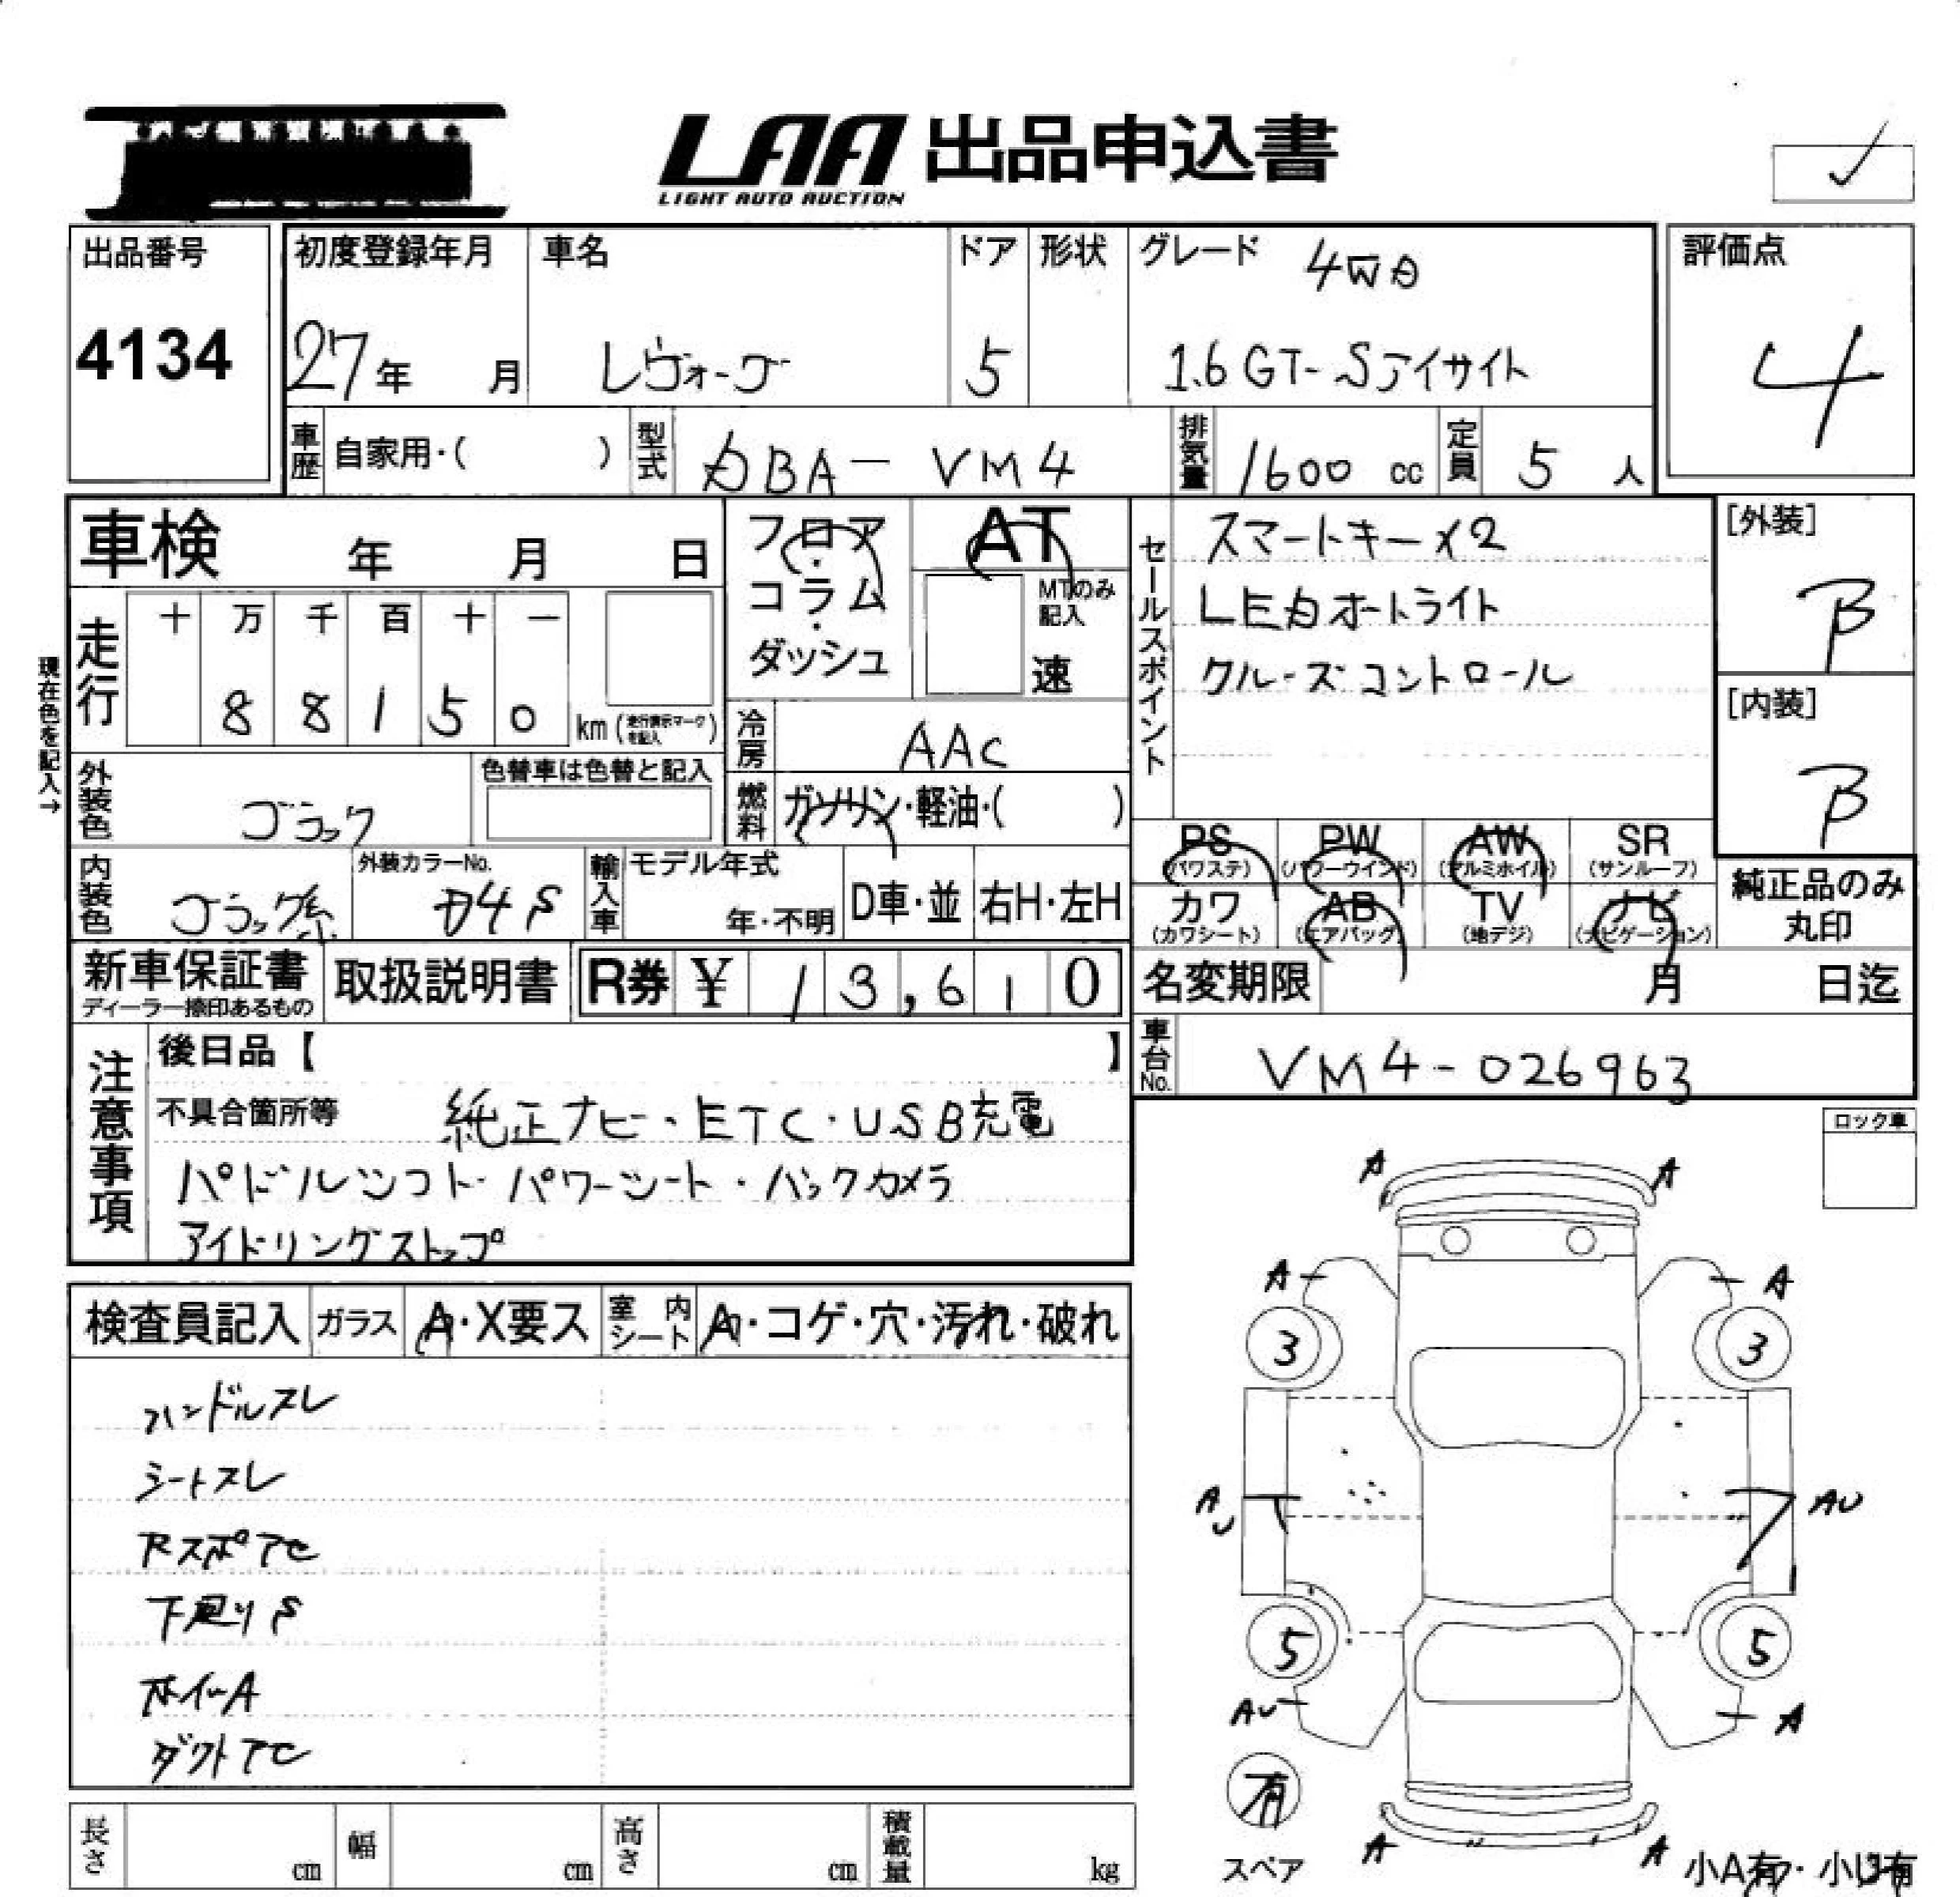 LAA 出品申込書
LIGHT AUTO AUCTION
出品番号
4134
初度登録年月
27年 月
車名
レヴォーグ
ドア
5
形状
グレード 4WD
1.6 GT-Sアイサイト
評価点
4
車歴 自家用・( )
型式 DBA-VM4
排気量 1600 cc
定員 5 人
車検 年 月 日
フロア・コラム・ダッシュ
AT
MTのみ記入
速
セールスポイント
スマートキー×2
LEDオートライト
クルーズコントロール
[外装]
B
[内装]
B
現在色を記入→
走行
十 万 千 百 十 一
8 8 1 5 0
km (走行表示マークを記入)
冷房 AAC
外装色 ブラック
色替車は色替と記入
燃料 ガソリン・軽油・( )
PS (パワステ)
PW (パワーウインド)
AW (アルミホイル)
SR (サンルーフ)
カワ (カワシート)
AB (エアバッグ)
TV (地デジ)
ナビ (ナビゲーション)
純正品のみ丸印
内装色 ブラック系
外装カラーNo. D4S
輸入車 モデル年式
年・不明
D車・並
右H・左H
新車保証書
ディーラー捺印あるもの
取扱説明書
R券 ¥ 13,610
名変期限 月 日迄
車台No. VM4-026963
注意事項
後日品【 】
不具合箇所等 純正ナビ・ETC・USB充電
パドルシフト・パワーシート・バックカメラ
アイドリングストップ
ロック車
検査員記入
ガラス A・X要ス
室内シート A・コゲ・穴・汚れ・破れ
ハンドルスレ
シートスレ
下廻りS
ホイールA
A A
A A
3 3
AU AU
5 5
AU A
有
スペア
A A
小A有・小U有
長さ cm
幅 cm
高さ cm
積載量 kg